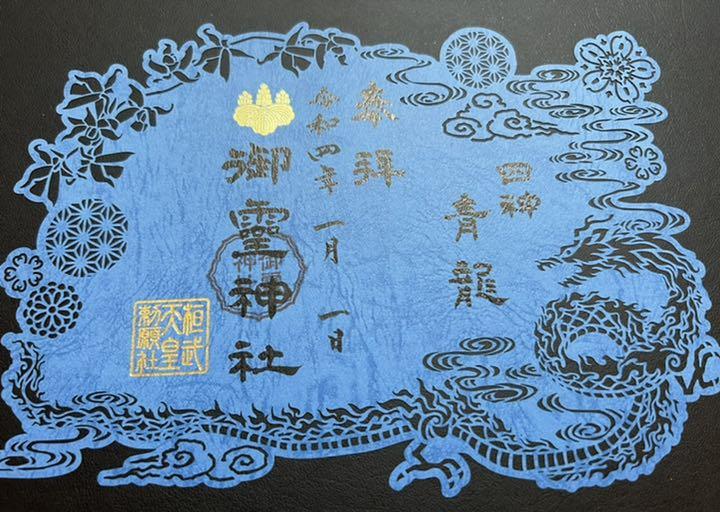 四神
青龍
奉拝
令和四年 一月 一日
御靈神社
桓武
天皇
勅願社